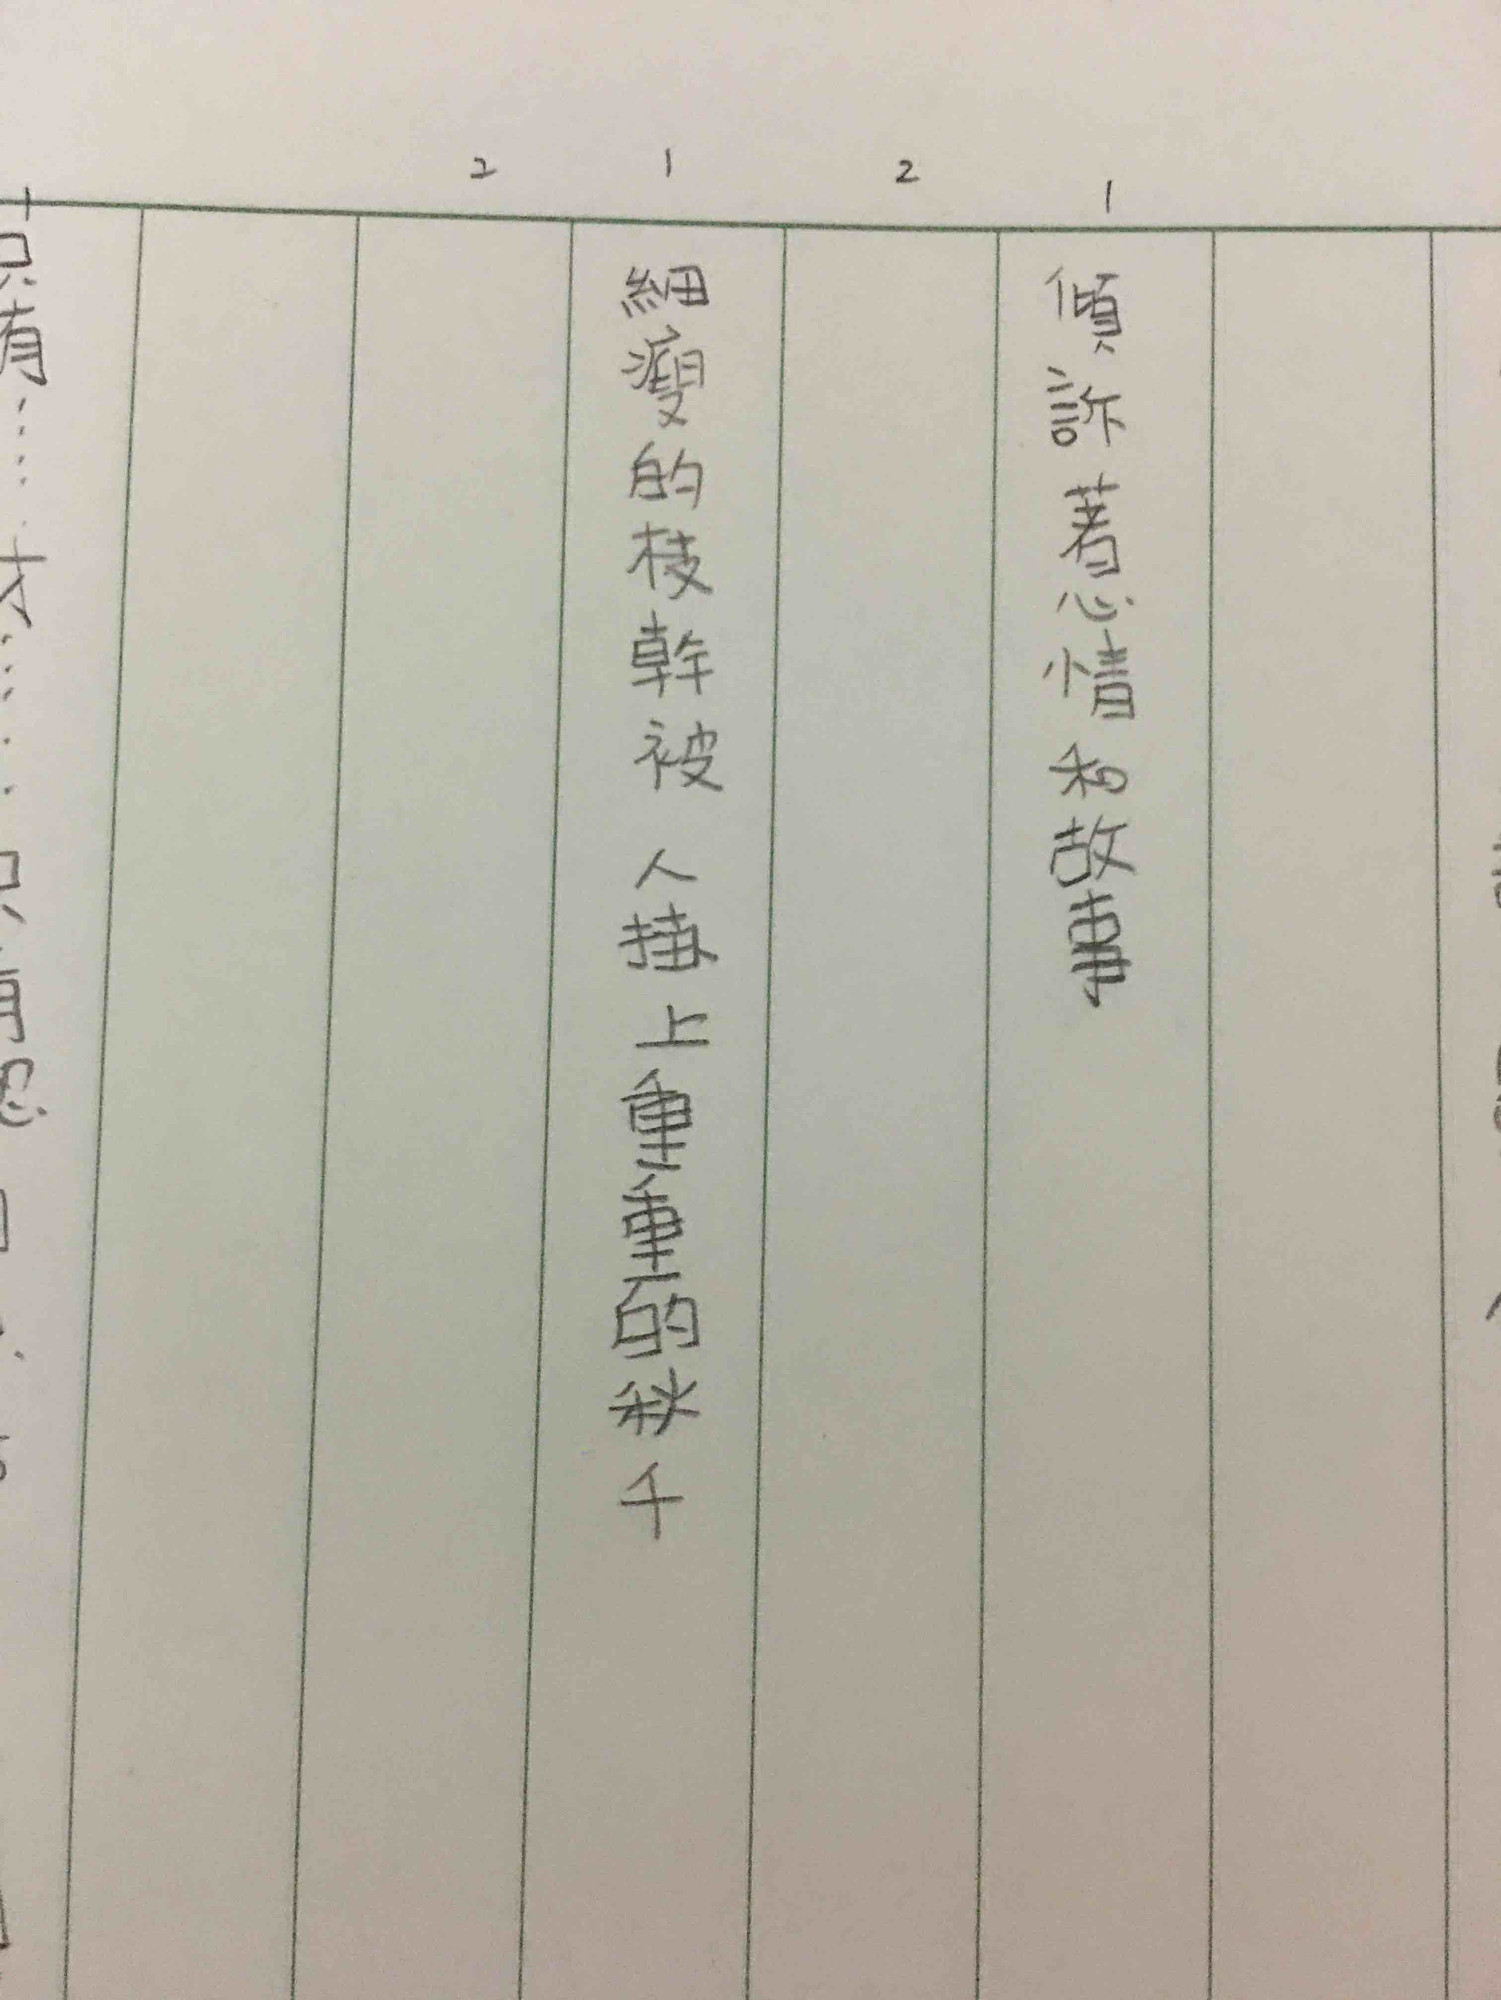 1
傾訴著心情和故事
2
1
細瘦的枝幹被人掛上重重的秋千
2
只有⋯⋯才⋯⋯